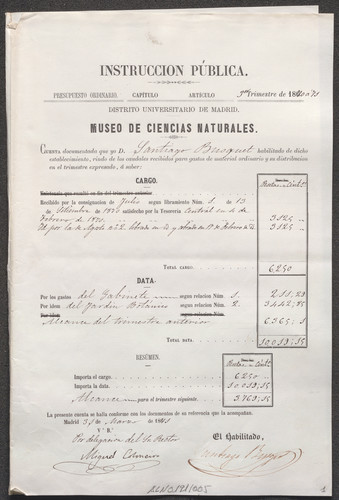 INSTRUCCION PÚBLICA.
PRESUPUESTO ORDINARIO. CAPÍTULO ARTÍCULO 3er Trimestre de 1870 a 71
DISTRITO UNIVERSITARIO DE MADRID.
MUSEO DE CIENCIAS NATURALES.
CUENTA documentada que yo D. Santiago Busquet habilitado de dicho
establecimiento, rindo de los caudales recibidos para gastos de material ordinario y su distribucion
en el trimestre expresado, á saber:
CARGO.
Existencia que resultó en fin del trimestre anterior
Recibido por la consignacion de Julio segun libramiento Núm. 1. de 13
de Setiembre de 1870 satisfecho por la Tesorería Central en 4 de
Febrero de 1871 3.125
3.125
TOTAL CARGO: 6.250
DATA:
Por los gastos del Gabinete segun relacion Núm. 1.
Por idem del Jardin Botánico segun relacion Núm. 2. 3.462,85
Alcance del trimestre anterior
TOTAL DATA: 10.013,55
RESÚMEN.
Importa el cargo. 6.250
Importa la data. 10.013,55
Alcance para el trimestre siguiente. 3.763,55
La presente cuenta se halla conforme con los documentos de su referencia que la acompañan.
Madrid 31 de Marzo de 1871
V.º B.º
Por delegacion del Sr. Rector
El Habilitado,
Miguel Colmeiro
Santiago Busquet